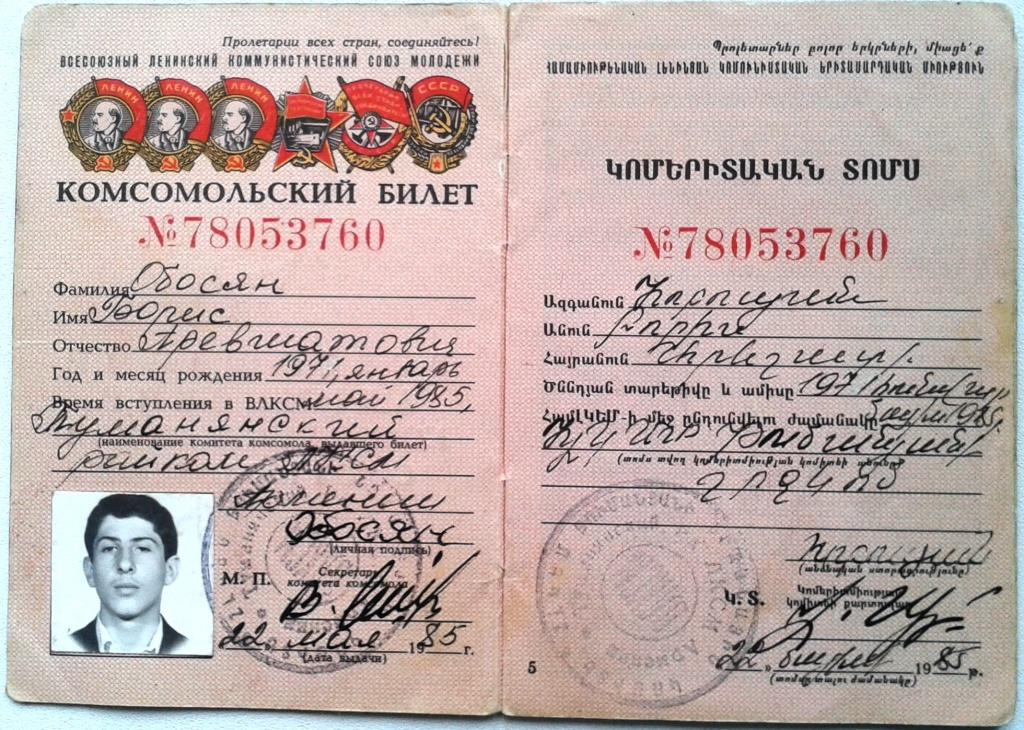 Пролетарии всех стран, соединяйтесь!
ВСЕСОЮЗНЫЙ ЛЕНИНСКИЙ КОММУНИСТИЧЕСКИЙ СОЮЗ МОЛОДЕЖИ
ЛЕНИН ЛЕНИН ЛЕНИН СССР
КОМСОМОЛЬСКИЙ БИЛЕТ
№78053760
Фамилия Обосян
Имя Борис
Отчество Аревшатович
Год и месяц рождения 1971, январь
Время вступления в ВЛКСМ май 1985,
Туманянский
(наименование комитета комсомола, выдавшего билет)
райком ЛКСМ
Армении
Обосян
(личная подпись)
М. П.
Секретарь
комитета комсомола
22 мая 1985 г.
(дата выдачи)
Պրոլետարներ բոլոր երկրների, միացե՛ք
ՀԱՄԱՄԻՈՒԹԵՆԱԿԱՆ ԼԵՆԻՆՅԱՆ ԿՈՄՈՒՆԻՍՏԱԿԱՆ ԵՐԻՏԱՍԱՐԴԱԿԱՆ ՄԻՈՒԹՅՈՒՆ
ԿՈՄԵՐԻՏԱԿԱՆ ՏՈՄՍ
№78053760
Ազգանուն
Անուն Բորիս
Հայրանուն
Ծննդյան տարեթիվը և ամիսը 1971 հունվար
ՀամԼԿԵՄ-ի մեջ ընդունվելու ժամանակը մայիս 1985
Թումանյանի
(տոմս տվող կոմերիտմիության կոմիտեի անունը)
շրջկոմ
(անձնական ստորագրությունը)
Կ. Տ.
Կոմերիտմիության
կոմիտեի քարտուղար
22 մայիսի 1985 թ.
(տոմսը տալու ժամանակը)
5